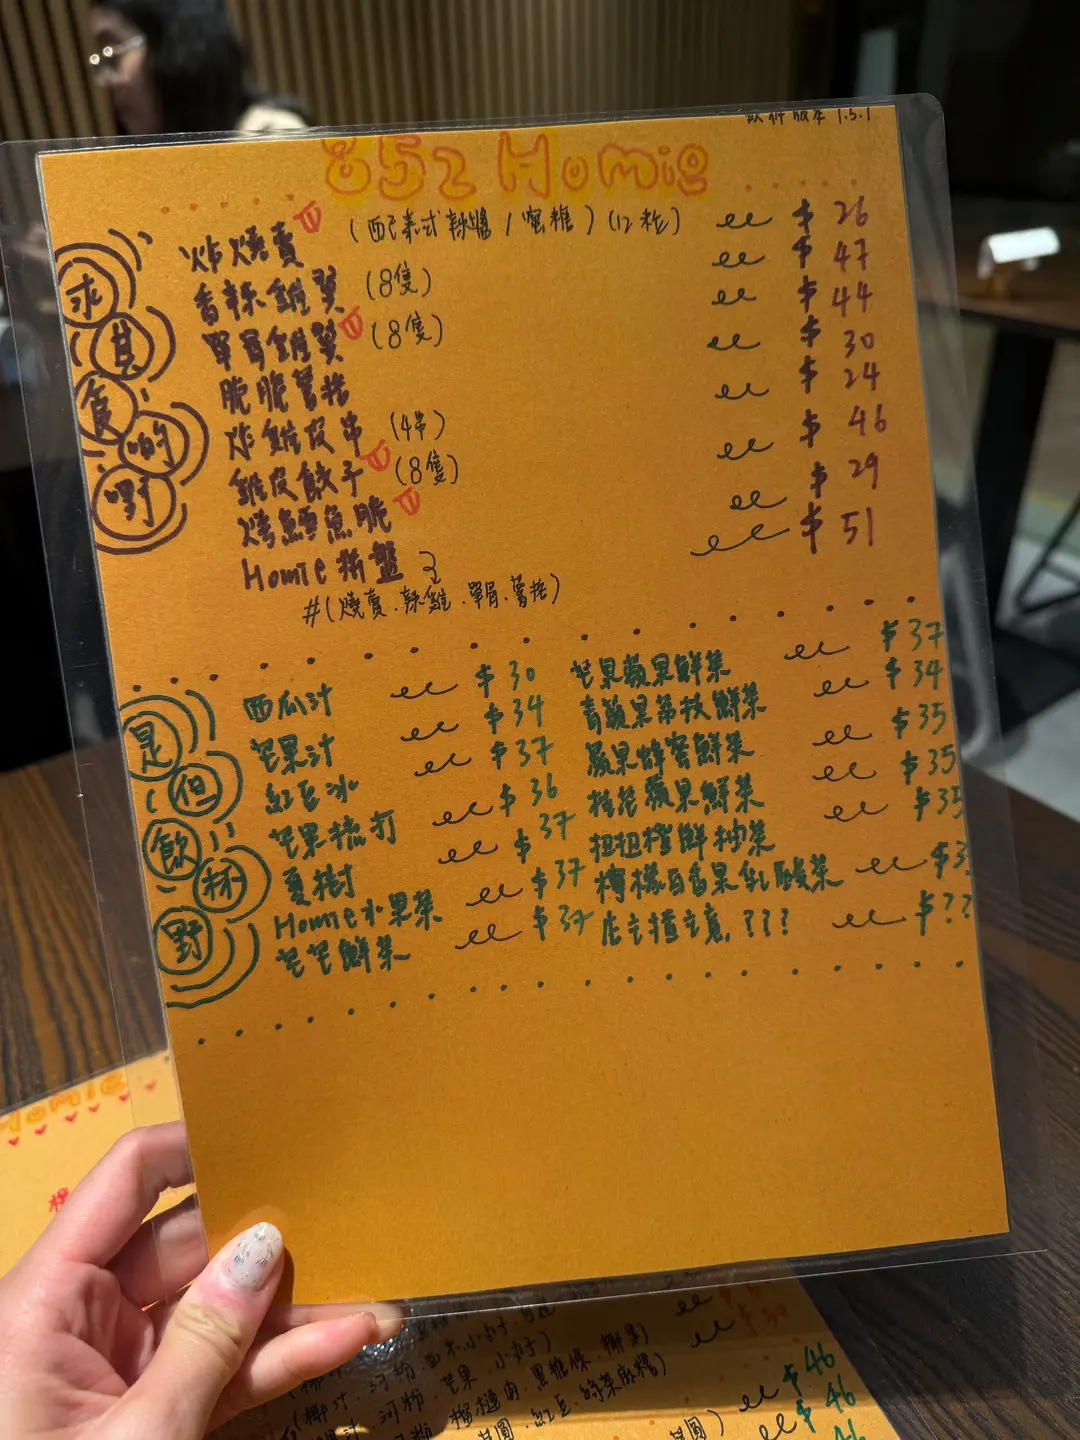 軟件版本 1.5.1
852 Homie
求其食啲嘢
炸燒賣 (配泰式辣醬 / 蜜糖) (12粒) $26
香辣雞翼 (8隻) $47
單骨雞翼 (8隻) $44
脆脆薯格 $30
炸雞皮串 (4串) $24
雞皮餃子 (8隻) $46
烤鱈魚脆 $29
Homie拼盤 $51
#(燒賣.辣雞.單骨.薯格)
是但飲杯野
西瓜汁 $30
芒果汁 $34
紅豆冰 $37
芒果梳打 $36
夏樹 $37
Homie水果茶 $37
芒芒鮮茶 $37
芒果蘋果鮮茶 $37
青蘋果荔枝鮮茶 $34
蘋果蜂蜜鮮茶 $35
桂花蘋果鮮茶 $35
扭扭橙鮮柚茶 $35
檸檬百香果乳酸茶 $3
店主揸主意,??? $??
Homie
$30
$46
$46